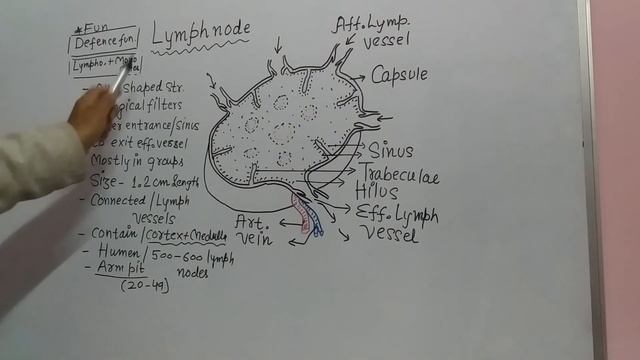 *Fun
Defence fun.
Lympho. +
Lymph node
shaped str.
filters
entrance/sinus
exit eff. vessel
Mostly in groups
Size - 1.2 cm length
- Connected/Lymph
vessels
- Contain/cortex+medulla
- Humen/500-600 lymph
nodes
- Arm pit
(20-49)
Aff. Lymp.
vessel
Capsule
Sinus
Trabeculae
Hilus
Eff. Lymph
vessel
Art.
vein